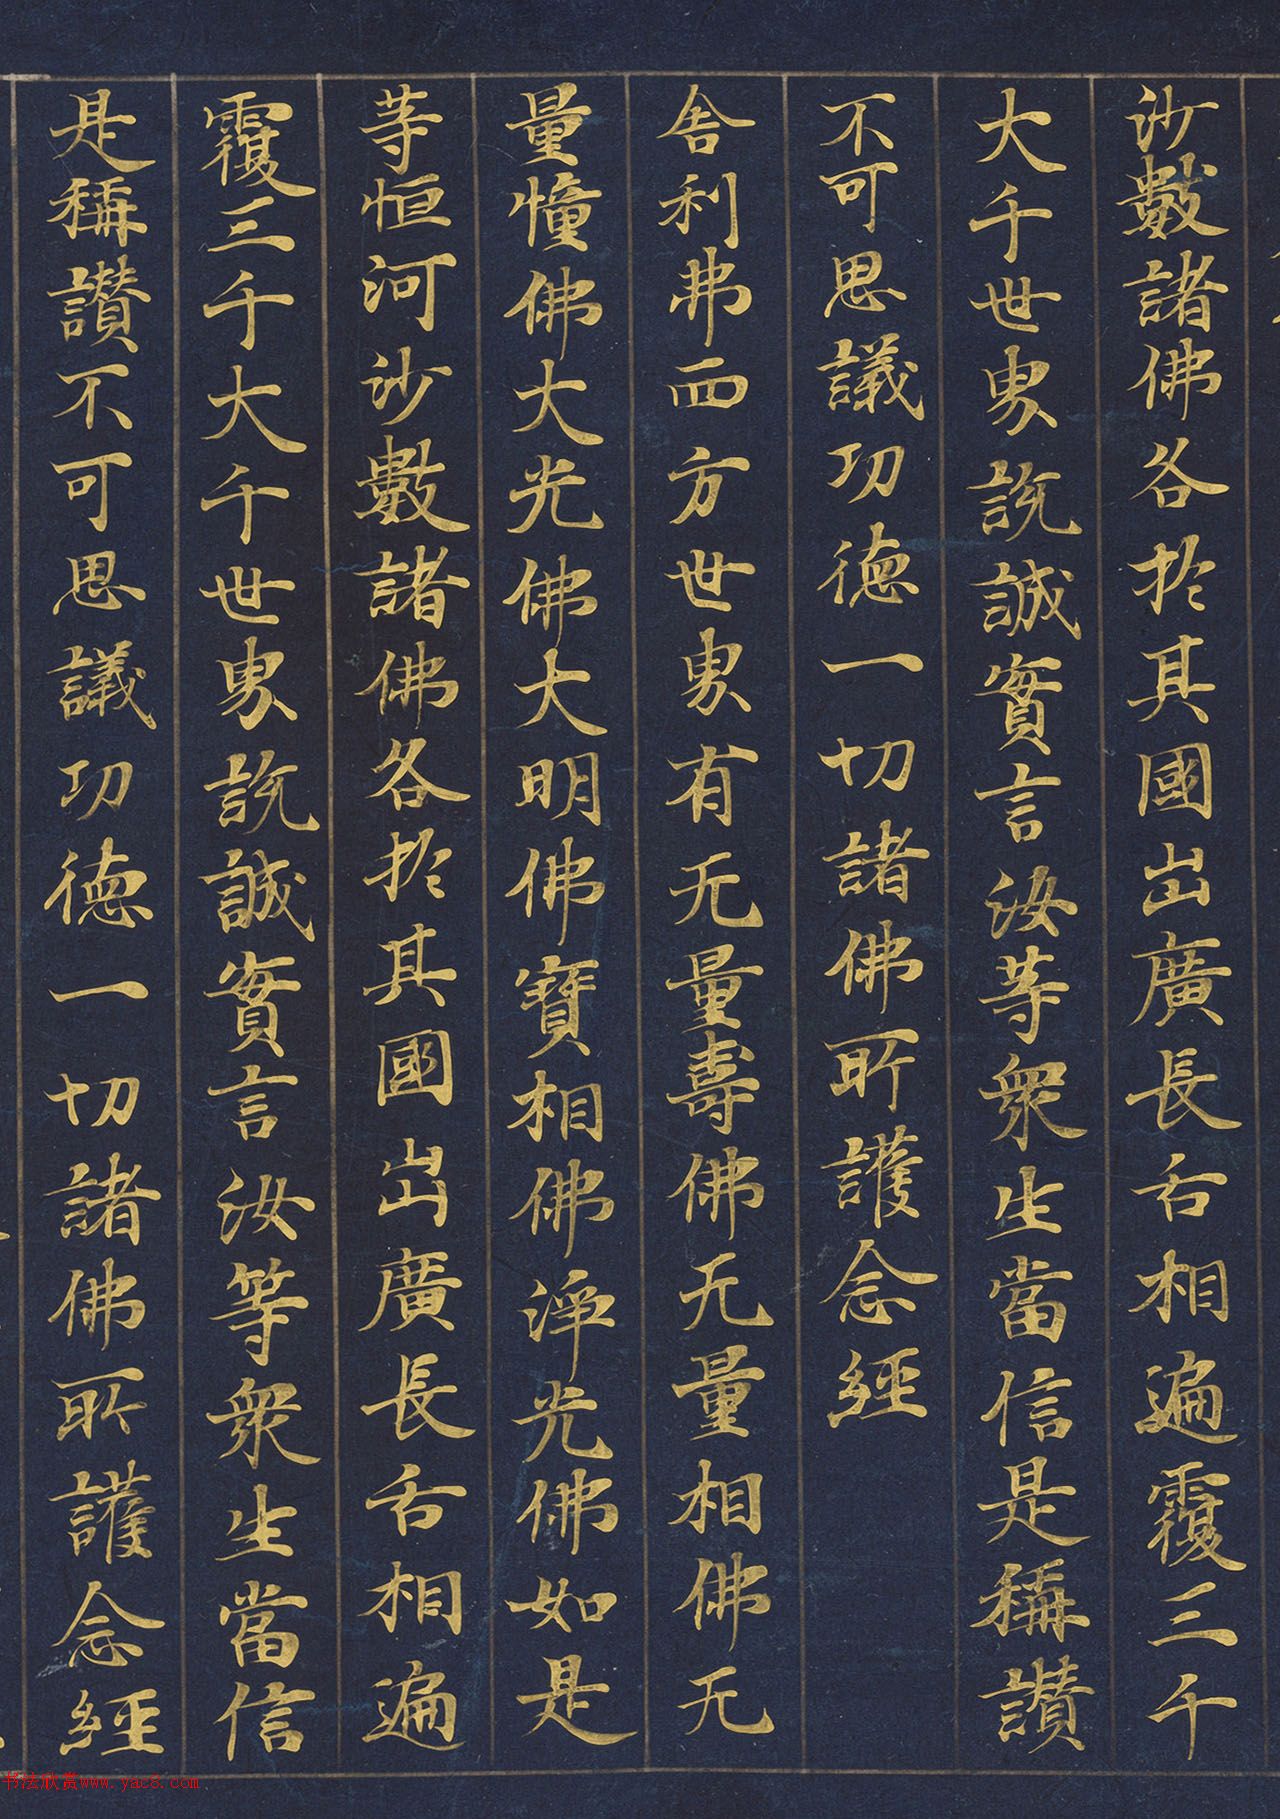 沙數諸佛各於其國出廣長舌相遍覆三千
大千世界說誠實言汝等衆生當信是稱讚
不可思議功德一切諸佛所護念經
舍利弗西方世界有无量壽佛无量相佛无
量幢佛大光佛大明佛寶相佛淨光佛如是
等恒河沙數諸佛各於其國出廣長舌相遍
覆三千大千世界說誠實言汝等衆生當信
是稱讚不可思議功德一切諸佛所護念經
书法欣赏www.yac8.com